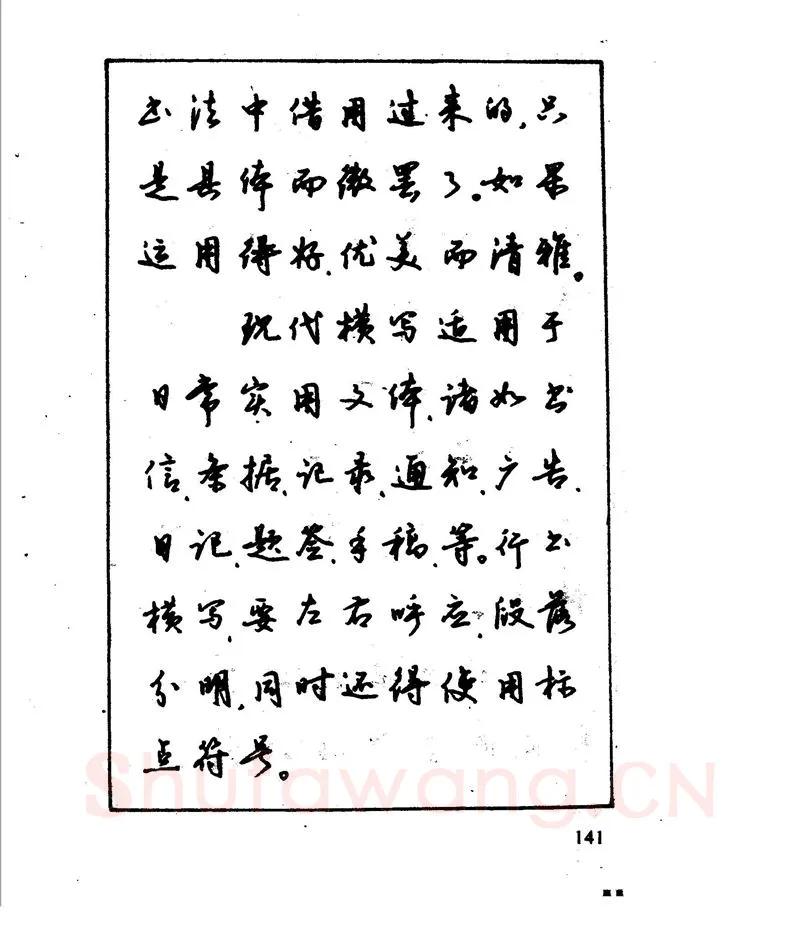 书法中借用过来的,只
是具体而微罢了。如果
运用得好,优美而清雅。
现代横写适用于
日常实用文体,诸如书
信、条据、记录、通知、广告、
日记、题签、手稿、等。行书
横写,要左右呼应,段落
分明,同时还得使用标
点符号。
Shufawang.CN
141